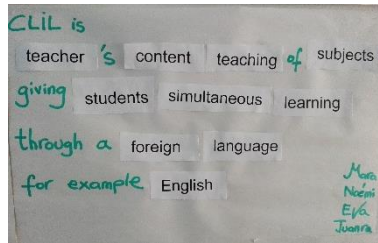 CLiL is
teacher 's content teaching of subjects
giving students simultaneous learning
through a foreign language
for example English
Mara
Noémi
Eva
Juanra